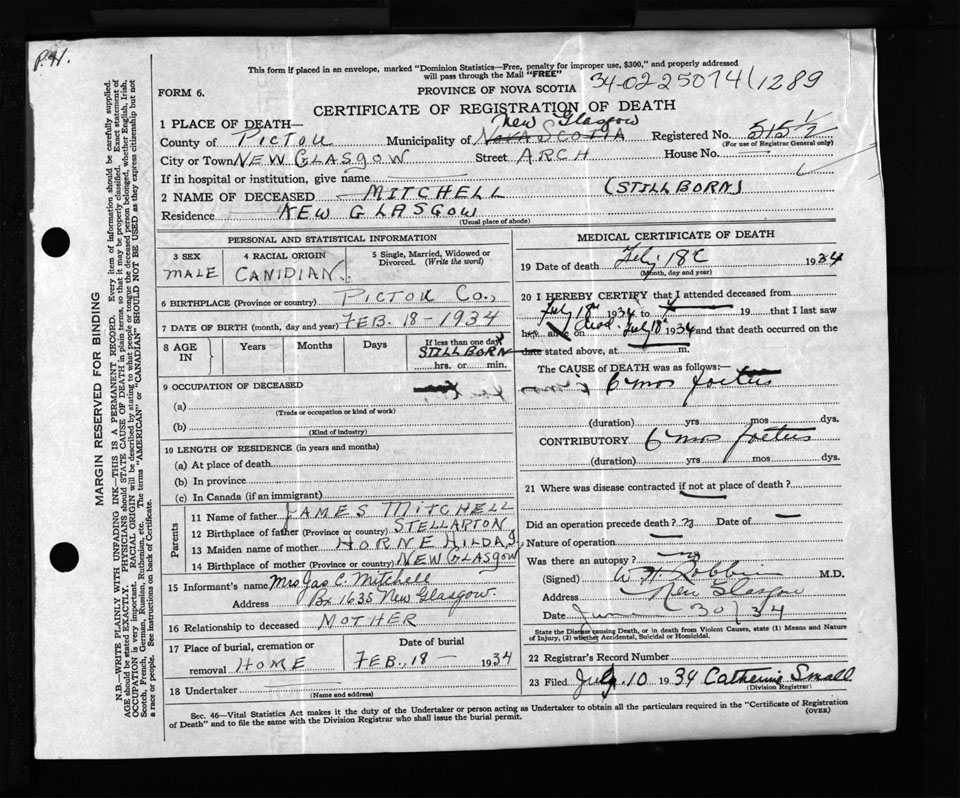 P.H.
This form if placed in an envelope, marked "Dominion Statistics—Free, penalty for improper use, $300," and properly addressed
will pass through the Mail "FREE"
34-02250741/1289
FORM 6.
PROVINCE OF NOVA SCOTIA
CERTIFICATE OF REGISTRATION OF DEATH
1 PLACE OF DEATH—
New Glasgow
County of PICTOU Municipality of NOVA SCOTIA Registered No. 515½
(For use of Registrar General only)
City or Town NEW GLASGOW Street ARCH House No.
If in hospital or institution, give name
2 NAME OF DECEASED MITCHELL (STILLBORN)
Residence NEW GLASGOW
(Usual place of abode)
PERSONAL AND STATISTICAL INFORMATION
3 SEX 4 RACIAL ORIGIN 5 Single, Married, Widowed or Divorced. (Write the word)
MALE CANIDIAN.
6 BIRTHPLACE (Province or country) PICTOU CO.,
7 DATE OF BIRTH (month, day and year) FEB. 18-1934
8 AGE IN Years Months Days If less one than day
STILLBORN
hrs. or min.
9 OCCUPATION OF DECEASED
(a)
(Trade or occupation or kind of work)
(b)
(Kind of industry)
10 LENGTH OF RESIDENCE (in years and months)
(a) At place of death
(b) In province
(c) In Canada (if an immigrant)
Parents
11 Name of father JAMES MITCHELL
12 Birthplace of father (Province or country) STELLARTON
13 Maiden name of mother HORNE HILDA J,
14 Birthplace of mother (Province or country) NEW GLASGOW
15 Informant's name Mrs Jas C. Mitchell
Address Bx 1635 New Glasgow.
16 Relationship to deceased MOTHER
17 Place of burial, cremation or removal HOME
Date of burial
FEB., 18 — 1934
18 Undertaker
(Name and address)
MEDICAL CERTIFICATE OF DEATH
19 Date of death Feby. 18 1934
(Month, day and year)
20 I HEREBY CERTIFY that I attended deceased from
Feby 18 1934 to 19 that I last saw
h alive on dead Feby 18 1934 and that death occurred on the
date stated above, at m.
The CAUSE of DEATH was as follows:—
6 mos foetus
(duration) yrs mos dys.
CONTRIBUTORY 6 mos foetus
(duration) yrs mos dys.
21 Where was disease contracted if not at place of death?
Did an operation precede death? Date of
Nature of operation
Was there an autopsy?
(Signed) W H Robbins M.D.
Address New Glasgow
Date June 30/34
State the Disease causing Death, or in death from Violent Causes, state (1) Means and Nature
of Injury, (2) whether Accidental, Suicidal or Homicidal.
22 Registrar's Record Number
23 Filed July 10 1934 Catherine Small
(Division Registrar)
Sec. 46—Vital Statistics Act makes it the duty of the Undertaker or person acting as Undertaker to obtain all the particulars required in the "Certificate of Registration
of Death" and to file the same with the Division Registrar who shall issue the burial permit.
(OVER)
MARGIN RESERVED FOR BINDING
N.B.—WRITE PLAINLY WITH UNFADING INK—THIS IS A PERMANENT RECORD. Every item of information should be carefully supplied.
AGE should be stated EXACTLY. PHYSICIANS should STATE CAUSE OF DEATH in plain terms, so that it may be properly classified. Exact statement of
OCCUPATION is very important. RACIAL ORIGIN will be described by stating to what people or tongue the deceased person belonged, whether English, Irish,
Scotch, French, German, Russian, Ruthenian, etc. The terms "AMERICAN" or "CANADIAN" SHOULD NOT BE USED as they express citizenship but not
a race or people. See instructions on back of Certificate.